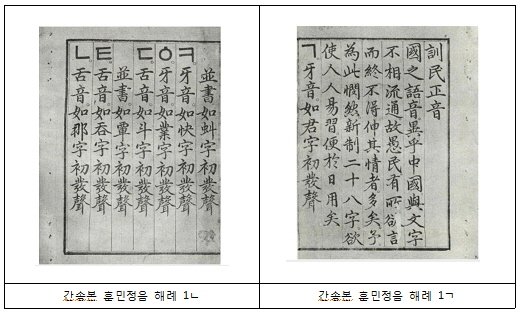 訓民正音
國之語音異乎中國與文字
不相流通故愚民有所欲言
而終不得伸其情者多矣予
為此憫然新制二十八字欲
使人人易習便於日用矣
ㄱ牙音如君字初發聲
간송본 훈민정음 해례 1ㄱ
並書如虯字初發聲
ㅋ牙音如快字初發聲
ㆁ牙音如業字初發聲
ㄷ舌音如斗字初發聲
並書如覃字初發聲
ㅌ舌音如呑字初發聲
ㄴ舌音如那字初發聲
간송본 훈민정음 해례 1ㄴ